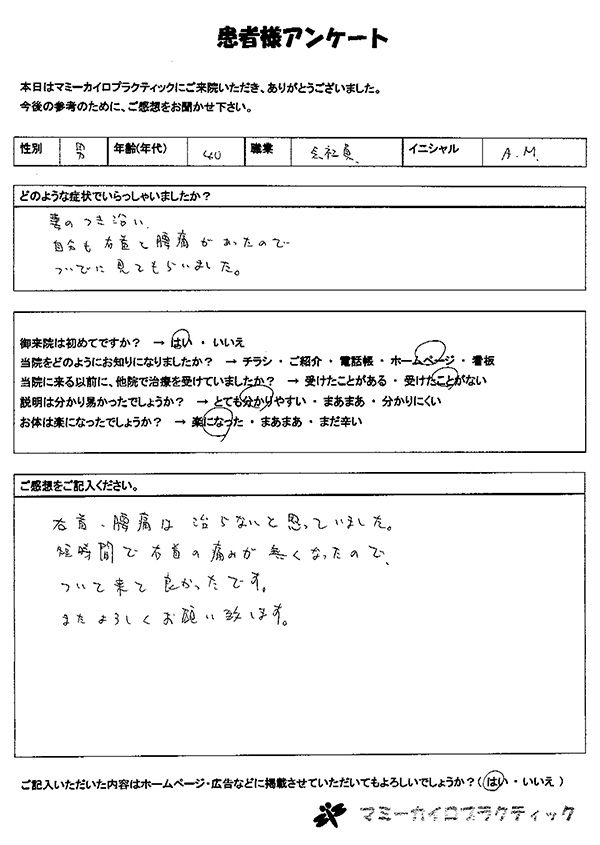 患者様アンケート
本日はマミーカイロプラクティックにご来院いただき、ありがとうございました。
今後の参考のために、ご感想をお聞かせ下さい。
性別 男 年齢(年代) 40 職業 会社員 イニシャル A.M.
どのような症状でいらっしゃいましたか？
妻のつき沿い、
自分も右首と腰痛があったので
ついでに見てもらいました。
御来院は初めてですか？ → はい ・ いいえ
当院をどのようにお知りになりましたか？ → チラシ ・ ご紹介 ・ 電話帳 ・ ホームページ ・ 看板
当院に来る以前に、他院で治療を受けていましたか？ → 受けたことがある ・ 受けたことがない
説明は分かり易かったでしょうか？ → とても分かりやすい ・ まあまあ ・ 分かりにくい
お体は楽になったでしょうか？ → 楽になった ・ まあまあ ・ まだ辛い
ご感想をご記入ください。
右首、腰痛は治らないと思っていました。
短時間で右首の痛みが無くなったので、
ついて来て良かったです。
またよろしくお願い致します。
ご記入いただいた内容はホームページ・広告などに掲載させていただいてもよろしいでしょうか？（ はい ・ いいえ ）
マミーカイロプラクティック